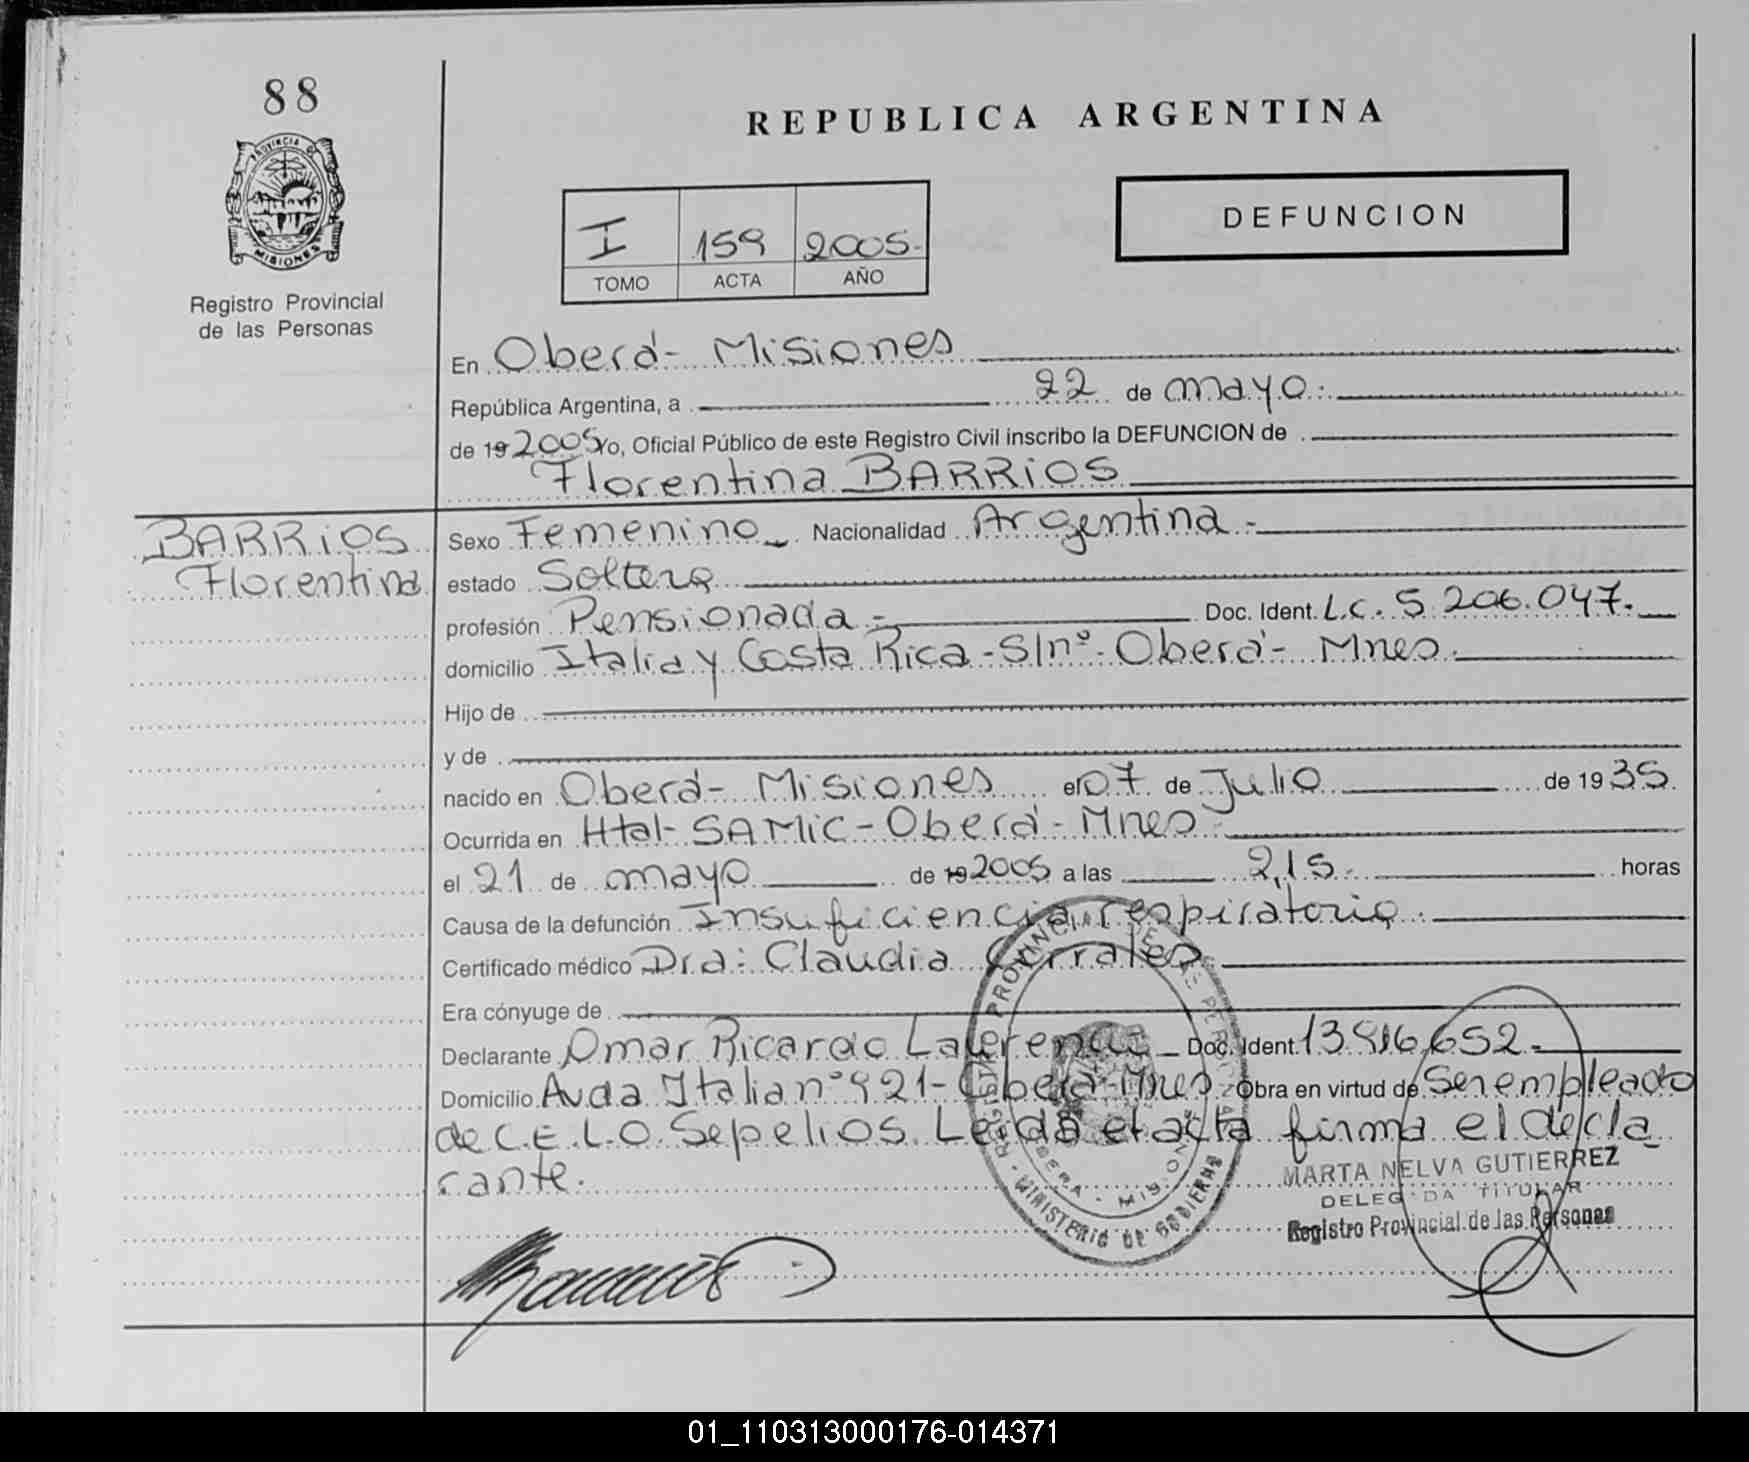 88
PROVINCIA DE
MISIONES
Registro Provincial
de las Personas
REPUBLICA ARGENTINA
I 159 2005.-
TOMO ACTA AÑO
DEFUNCION
En Oberá- Misiones
República Argentina, a 22 de mayo.-
de 19 2005 Yo, Oficial Público de este Registro Civil inscribo la DEFUNCION de
Florentina BARRIOS
BARRIOS
Florentina
Sexo Femenino Nacionalidad Argentina.-
estado Soltera
profesión Pensionada.- Doc. Ident. L.C. 5.206.047.-
domicilio Italia y Costa Rica-S/nº-Oberá- Mnes.
Hijo de
y de
nacido en Oberá- Misiones el 07 de Julio de 1935.
Ocurrida en Htal-SAMIC-Oberá-Mnes.-
el 21 de mayo de 19 2005 a las 2,15.- horas
Causa de la defunción Insuficiencia respiratoria.-
Certificado médico Dra: Claudia Corrales
Era cónyuge de
Declarante Omar Ricardo Doc. Ident. 652.-
Domicilio Avda Italia nº 921-Oberá-Mnes. Obra en virtud de Ser empleado
de C.E.L.O Sepelios. Leida el acta firma el decla
rante.
MARTA NELVA GUTIERREZ
DELEGADA TITULAR
Registro Provincial de las Personas
REGISTRO PROVINCIAL DE LAS PERSONAS
OBERA - MISIONES
MINISTERIO DE GOBIERNO
01_110313000176-014371